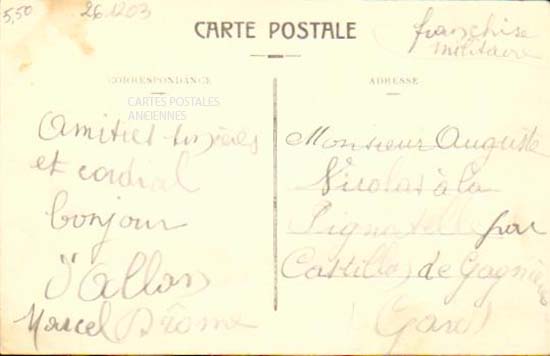 5,50
261203
CARTE POSTALE
franchise
militaire
CORRESPONDANCE
CARTES POSTALES
ANCIENNES
Amitiés sincères
et cordial
bonjour
d'Allon
Marcel Drôme
ADRESSE
Monsieur Auguste
Nicolas à la
Pignatelle par
Castillon de Gagnières
Gard